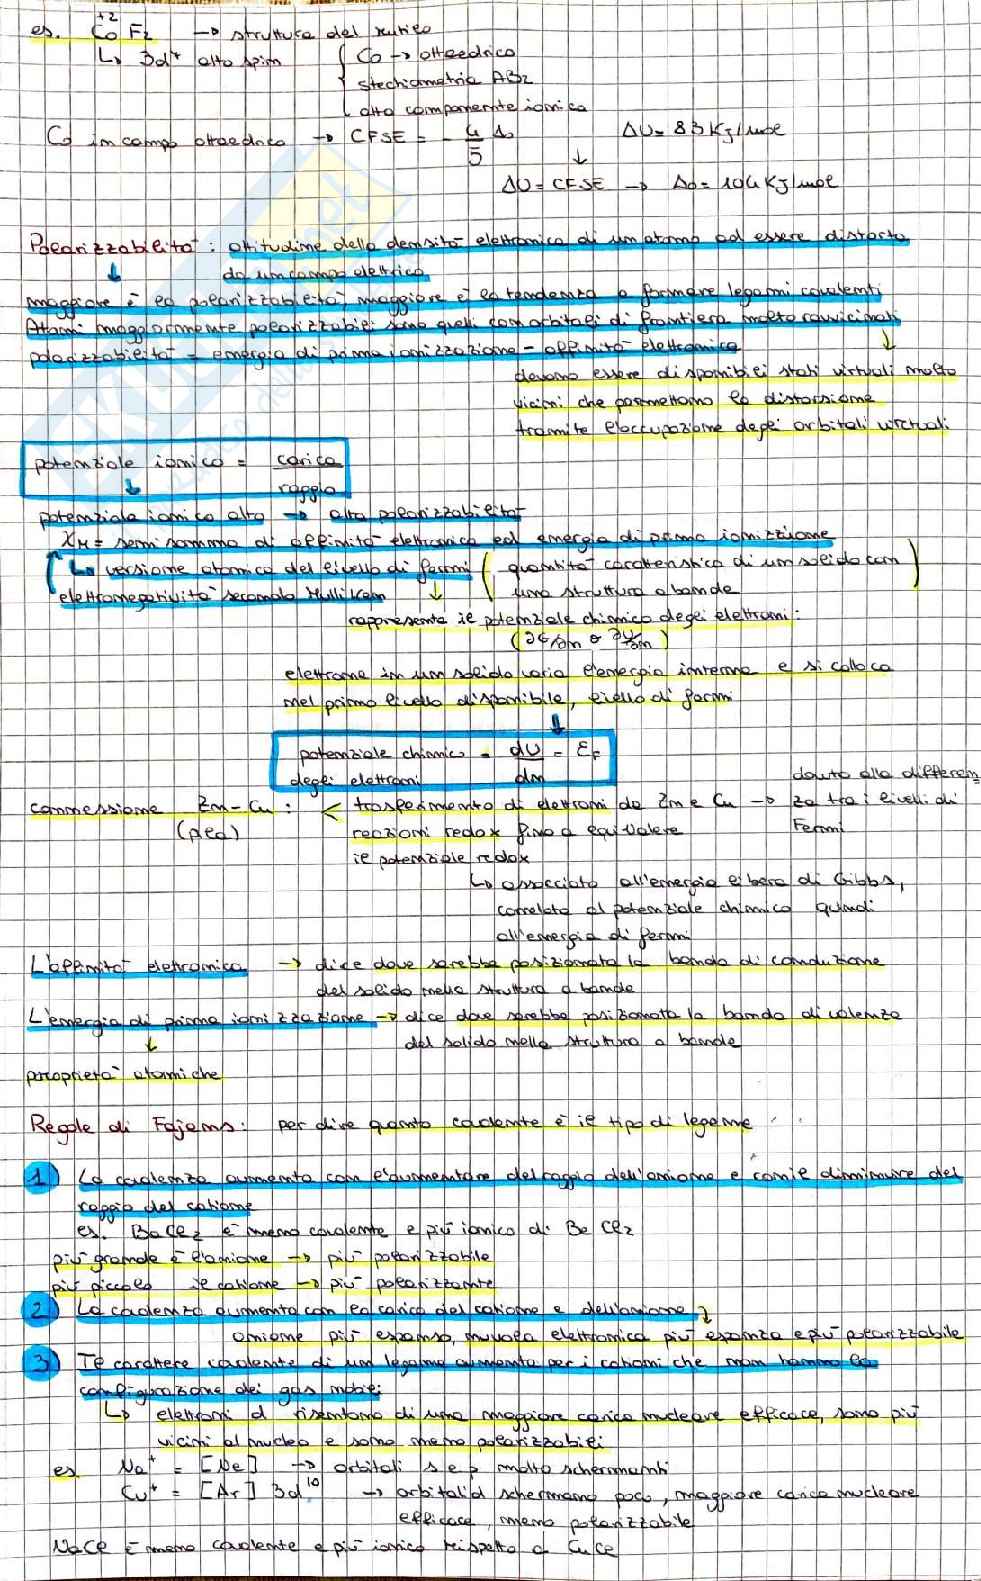 es. Co⁺² F₂ → struttura del rutilo
↳ 3d⁷ alto spin { Co → ottaedrico
stechiometria AB₂
alta componente ionica
Co in campo ottaedrico → CFSE = - 4/5 Δo ΔU = 83 KJ/mole
↓
ΔU = CFSE → Δo = 104 KJ/mole
Polarizzabilità: attitudine della densità elettronica di un atomo ad essere distorta
↓ da un campo elettrico
maggiore è la polarizzabilità, maggiore è la tendenza a formare legami covalenti
Atomi maggiormente polarizzabili sono quelli con orbitali di frontiera molto ravvicinati
polarizzabilità = energia di prima ionizzazione - affinità elettronica ↓
devono essere disponibili stati virtuali molto
vicini che permettono la distorsione
tramite l'occupazione degli orbitali virtuali
potenziale ionico = carica
↓ raggio
potenziale ionico alto → alta polarizzabilità
χM = semi somma di affinità elettronica ed energia di prima ionizzzione
↳ versione atomica del livello di fermi ( quantità caratteristica di un solido con
elettronegatività secondo Mulliken ↓ una struttura a bande )
rappresenta il potenziale chimico degli elettroni:
(∂G/∂n o ∂U/∂n)
elettrone in un solido varia l'energia interna e si colloca
nel primo livello disponibile, livello di fermi
↓
potenziale chimico = dU = εF
degli elettroni dn
dovuto alla differen
connessione Zn-Cu : < trasferimento di elettroni da Zn e Cu → za tra i livelli di
(pila) reazioni redox fino a equivalere Fermi
il potenziale redox
↳ associato all'energia libera di Gibbs,
correlata al potenziale chimico quindi
all'energia di fermi
L'affinità elettronica → dice dove sarebbe posizionata la banda di conduzione
del solido nella struttura a bande
L'energia di prima ionizzazione → dice dove sarebbe posizionata la banda di valenza
↓ del solido nella struttura a bande
proprietà atomiche
Regole di Fajans: per dire quanto covalente è il tipo di legame
1) La covalenza aumenta con l'aumentare del raggio dell'anione e con il diminuire del
raggio del catione
es. BaCl₂ è meno covalente e più ionico di BeCl₂
più grande è l'anione → più polarizzabile
più piccolo il catione → più polarizzante
2) La covalenza aumenta con la carica del catione e dell'anione ↓
anione più espanso, nuvola elettronica più espansa e più polarizzabile
3) Il carattere covalente di un legame aumenta per i cationi che non hanno la
configurazione dei gas nobili
↳ elettroni d risentono di una maggiore carica nucleare efficace, sono più
vicini al nucleo e sono meno polarizzabili
es. Na⁺ = [Ne] → orbitali s e p molto schermanti
Cu⁺ = [Ar] 3d¹⁰ → orbitali d schermano poco, maggiore carica nucleare
efficace, meno polarizzabile
NaCl è meno covalente e più ionico rispetto a CuCl